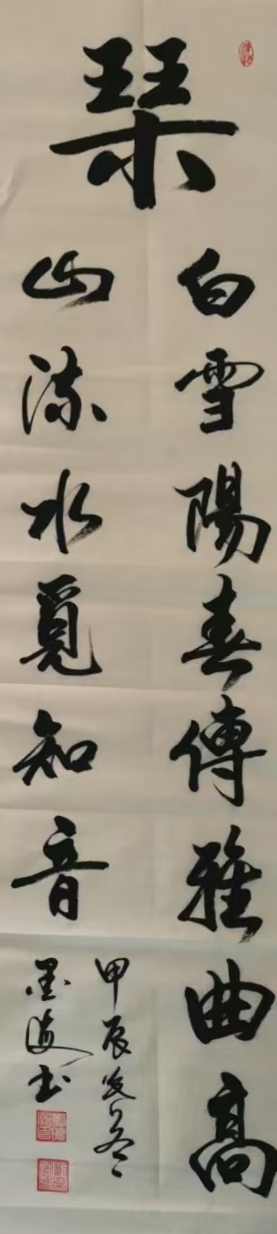 琹
白雪陽春傳雅曲高
山流水覓知音
甲辰冬
墨海书